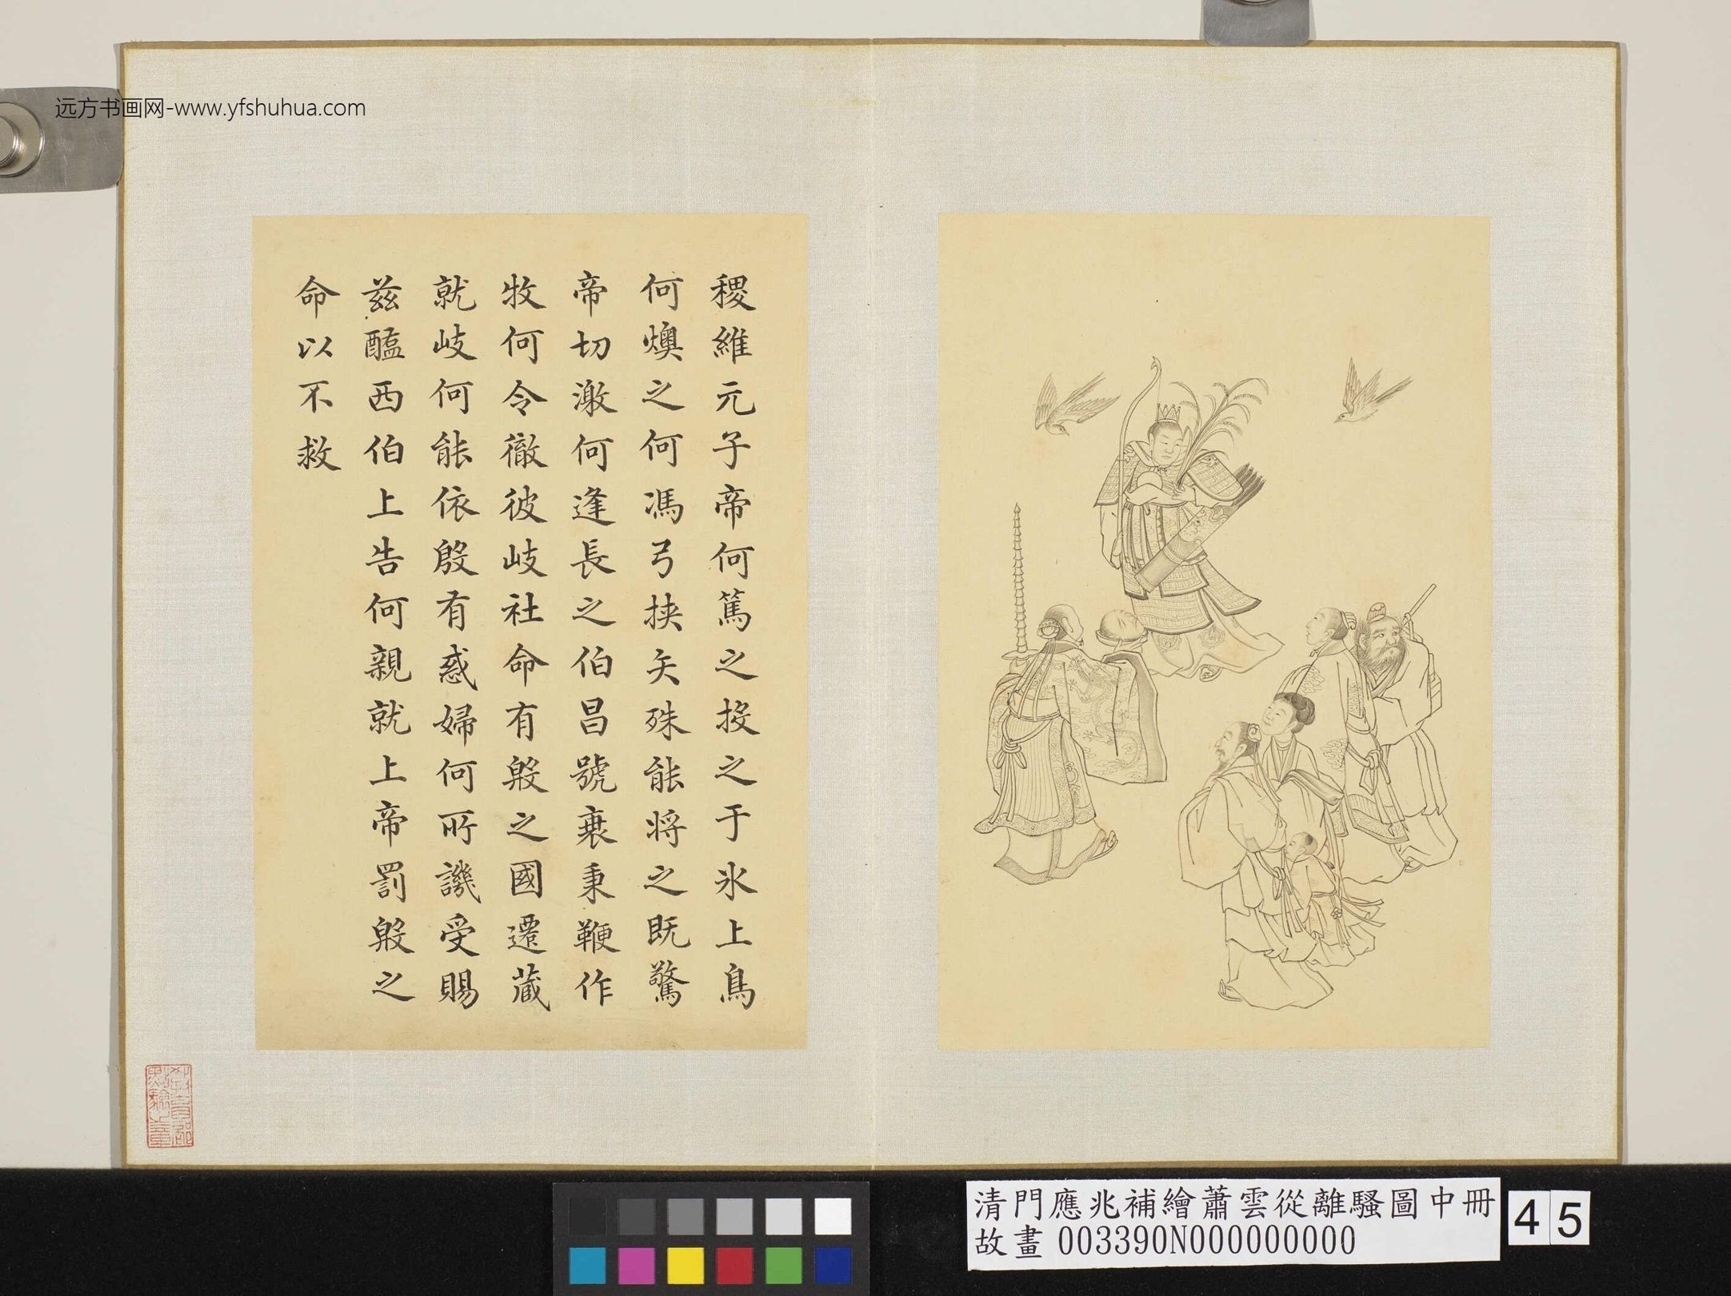 远方书画网-www.yfshuhua.com
稷維元子帝何篤之投之于氷上鳥
何燠之何馮弓挟矢殊能将之既驚
帝切激何逢長之伯昌號衰秉鞭作
牧何令徹彼岐社命有殷之國遷藏
就岐何能依殷有惑婦何所譏受賜
兹醢西伯上告何親就上帝罰殷之
命以不救
清門應兆補繪蕭雲從離騷圖中冊
故畫 003390N000000000
45